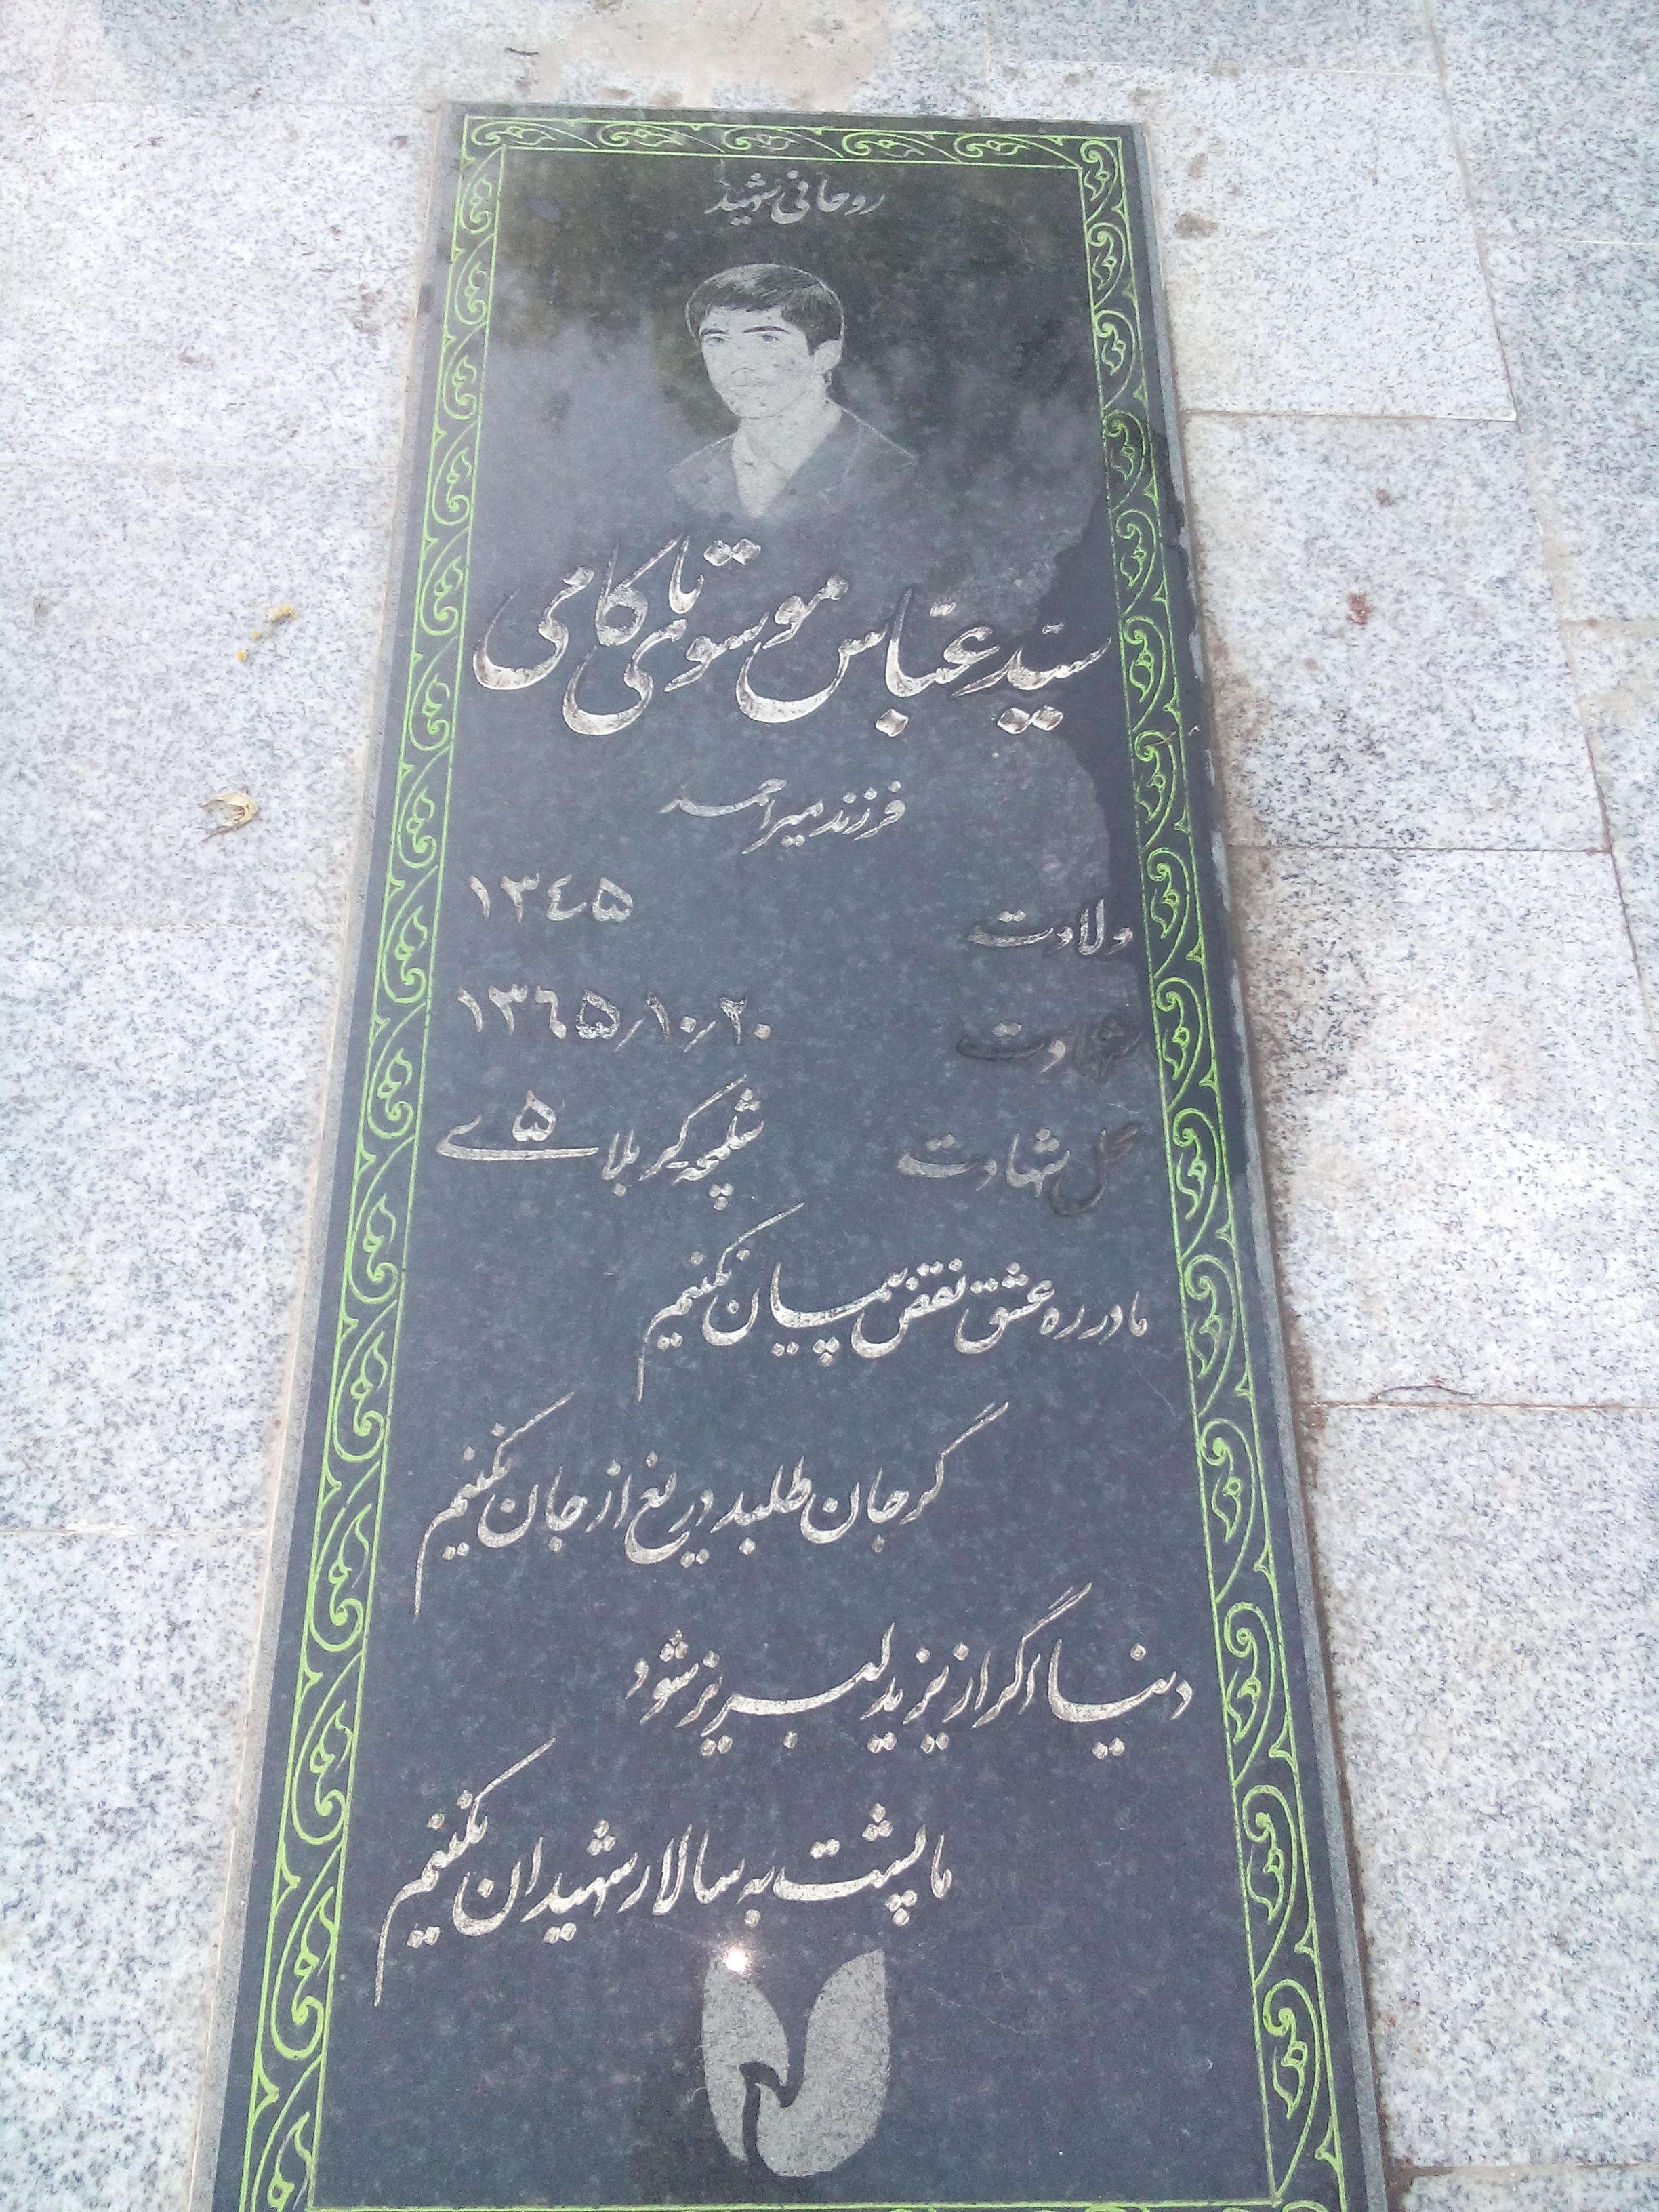 روحانی شهید
سیّد عبّاس موسوی تاکامی
فرزند میراحمد
ولادت ۱۳۴۵
شهادت ۱۳۶۵٫۱۰٫۲۰
محل شهادت شلمچه کربلای ۵
ما در ره عشق نقض پیمان نکنیم
گر جان طلبد دریغ از جان نکنیم
دنیا اگر از یزید لبریز شود
ما پشت به سالار شهیدان نکنیم